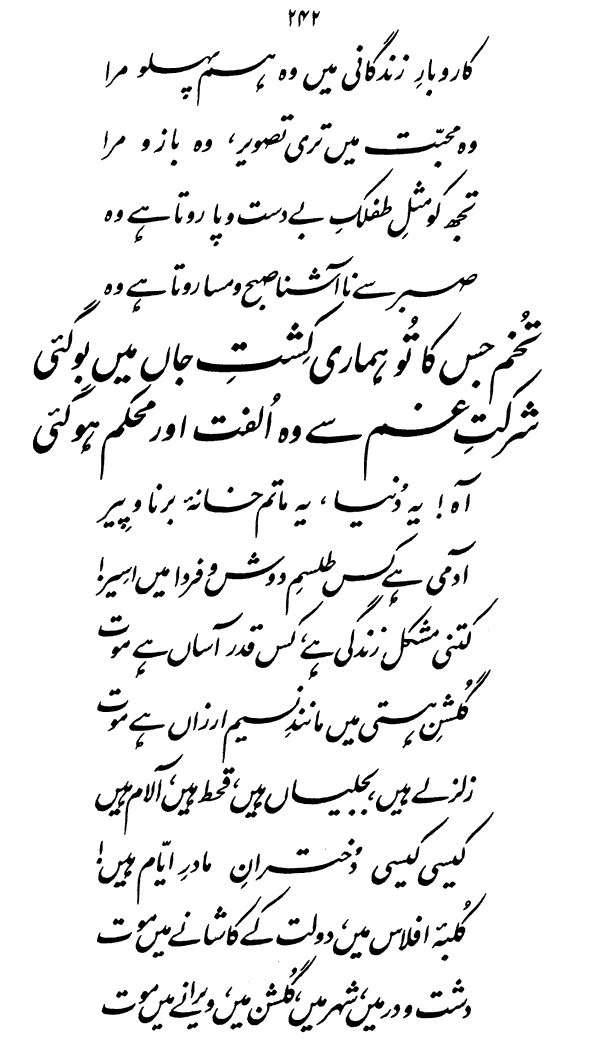 ۲۴۲
کاروبارِ زندگانی میں وہ ہم پہلو مرا
وہ محبّت میں تری تصویر، وہ بازو مرا
تجھ کو مثلِ طفلکِ بے دست و پا روتا ہے وہ
صبر سے نا آشنا صبح و مسا روتا ہے وہ
تُخم جس کا تُو ہماری کِشتِ جاں میں بو گئی
شرکتِ غم سے وہ اُلفت اور محکم ہو گئی
آہ! یہ دُنیا، یہ ماتم خانۂ برنا و پِیر
آدمی ہے کس طلسمِ دوش و فردا میں اسِیر!
کتنی مشکل زندگی ہے، کس قدر آساں ہے موت
گُلشنِ ہستی میں مانندِ نسیم ارزاں ہے موت
زلزلے ہیں، بجلیاں ہیں، قحط ہیں، آلام ہیں
کیسی کیسی دُخترانِ مادرِ ایّام ہیں!
کُلبۂ افلاس میں، دولت کے کاشانے میں موت
دشت و در میں، شہر میں، گُلشن میں، ویرانے میں موت